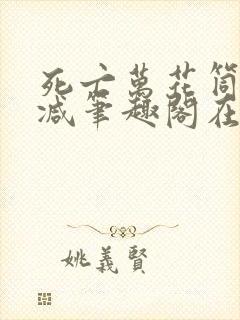 死亡萬花筒
減筆趣閣在
姚義賢